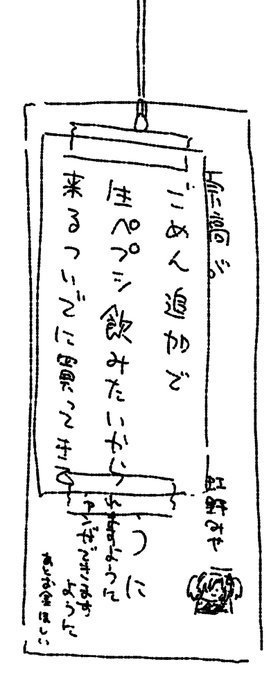 ごめん追加で
生ペプシ飲みたいから
来るついでに買ってきて
うに
れますように
できます
ように
あとお金ほしい